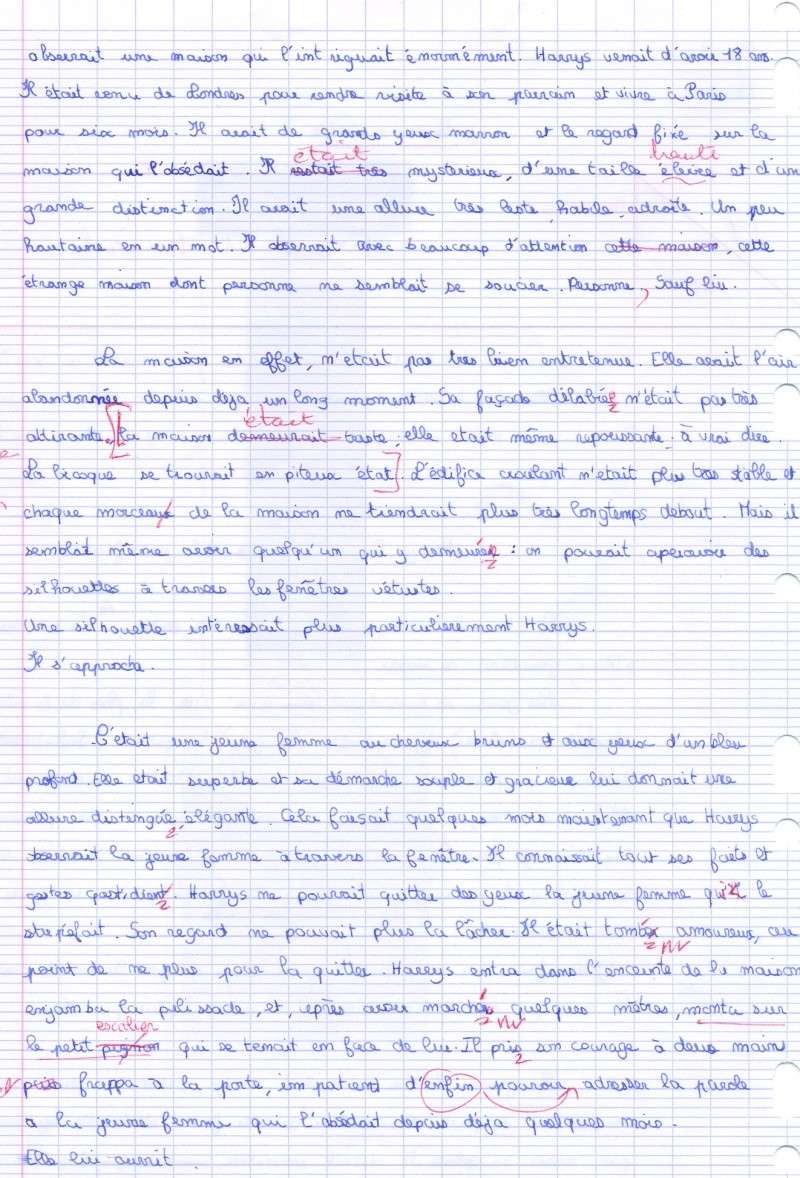 observait une maison qui l'int riguait énormément. Harrys venait d'avoir 18 ans.
Il était venu de Londres pour rendre visite à son parrain et vivre à Paris
pour six mois. Il avait de grands yeux marron et le regard fixé sur la
était haute
maison qui l'obsédait. Il restait très mysterieux, d'une taille élevée et d'un
grande distinction. Il avait une allure très leste, habile, adroite. Un peu
hautaine en un mot. Il observait avec beaucoup d'attention cette maison, cette
étrange maison dont personne ne semblait se soucier. Personne, Sauf lui.
La maison en effet, n'etait pas tres bien entretenue. Elle avait l'air
abandonnée depuis deja un long moment. Sa façade délabrée n'était pas très
était
attirante. La maison demeurait triste, elle etait même repoussante à vrai dire.
La bicoque se trouvait en piteux état. L'édifice croulant n'etait plus tres stable et
chaque morceaux de la maison ne tiendrait plus très longtemps debout. Mais il
semblait même avoir quelqu'un qui y demeurer : on pouvait apercevoir des
silhouettes à travers les fenêtres vétustes.
Une silhouette intéressait plus particulierement Harrys.
Il s'approcha.
C'était une jeune femme au cheveux bruns et aux yeux d'un bleu
profond. Elle etait superbe et sa démarche souple et gracieuse lui donnait une
allure distinguée, élégante. Cela faisait quelques mois maintenant que Harrys
observait la jeune femme à travers la fenêtre. Il connaissait tout ses faits et
gestes quotidient. Harrys ne pouvait quitter des yeux la jeune femme qui le
stupéfait. Son regard ne pouvait plus la lâcher. Il était tombé amoureux, au
point de ne plus pour la quitter. Harrys entra dans l'enceinte de la maison
enjamba la palissade, et, après avoir marché quelques mètres, monta sur
escalier
le petit pignon qui se tenait en face de lui. Il pris son courage à deux main
puis frappa à la porte, impatient d'enfin pouvoir adresser la parole
a la jeune femme qui l'obsédait depuis déja quelques mois.
Elle lui ouvrit.